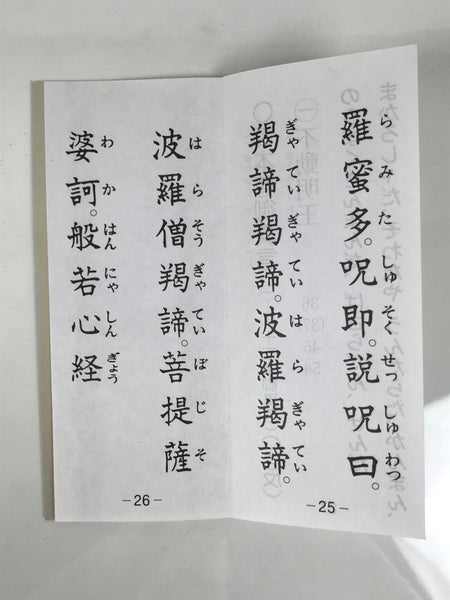 羅蜜多。呪即。説呪曰。
らみたしゅそくせつしゅわつ
羯諦羯諦。波羅羯諦。
ぎゃていぎゃていはらぎゃてい
－25－
波羅僧羯諦。菩提薩
はらそうぎゃていぼじそ
婆訶。般若心経
わかはんにゃしんぎょう
－26－